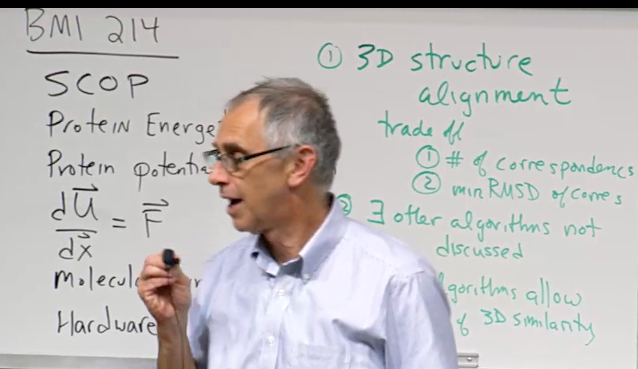 BMI 214
SCOP
Protein Energe
Protein potentia
dU
dx
= F
Molecul
Hardware
① 3D structure
alignment
trade off
① # of correspondences
② min RMSD of corres
② ∃ other algorithms not
discussed
gorithms allow
of 3D similarity